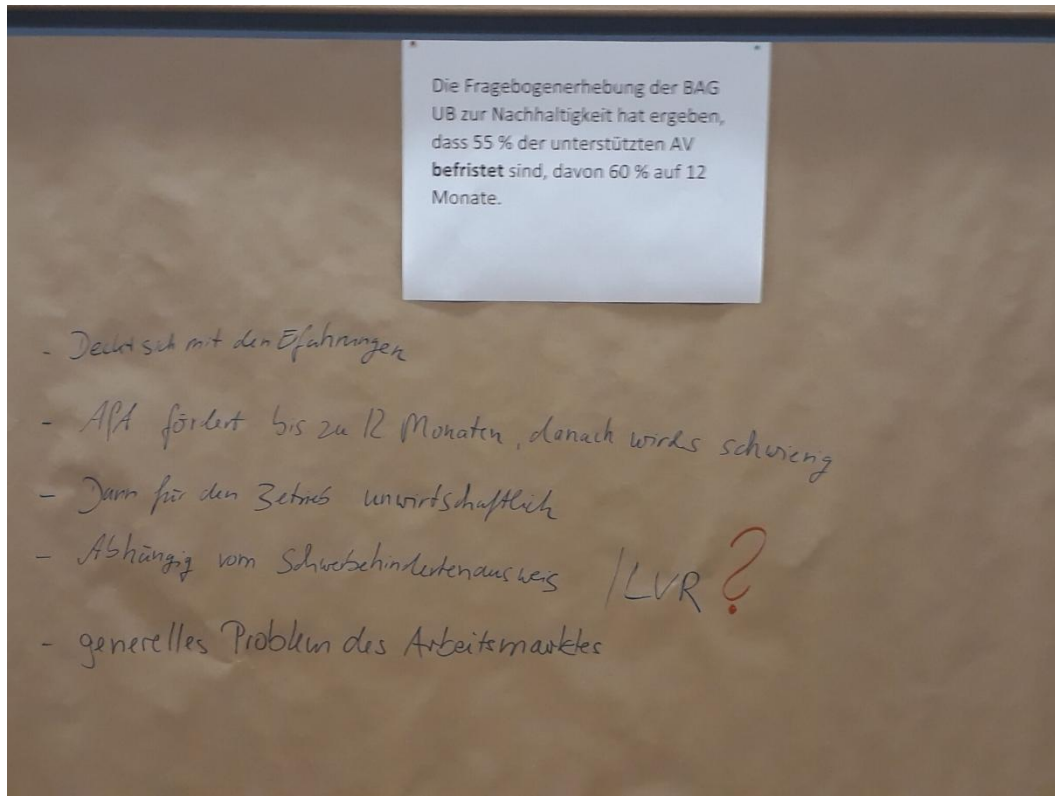 Die Fragebogenerhebung der BAG
UB zur Nachhaltigkeit hat ergeben,
dass 55 % der unterstützten AV
befristet sind, davon 60 % auf 12
Monate.
- Deckt sich mit den Efahrungen
- AfA fördert bis zu 12 Monaten, danach wirds schwierig
- Dann für den Betrieb unwirtschaftlich
- Abhängig vom Schwebehindertenausweis /LVR ?
- generelles Problem des Arbeitsmarktes